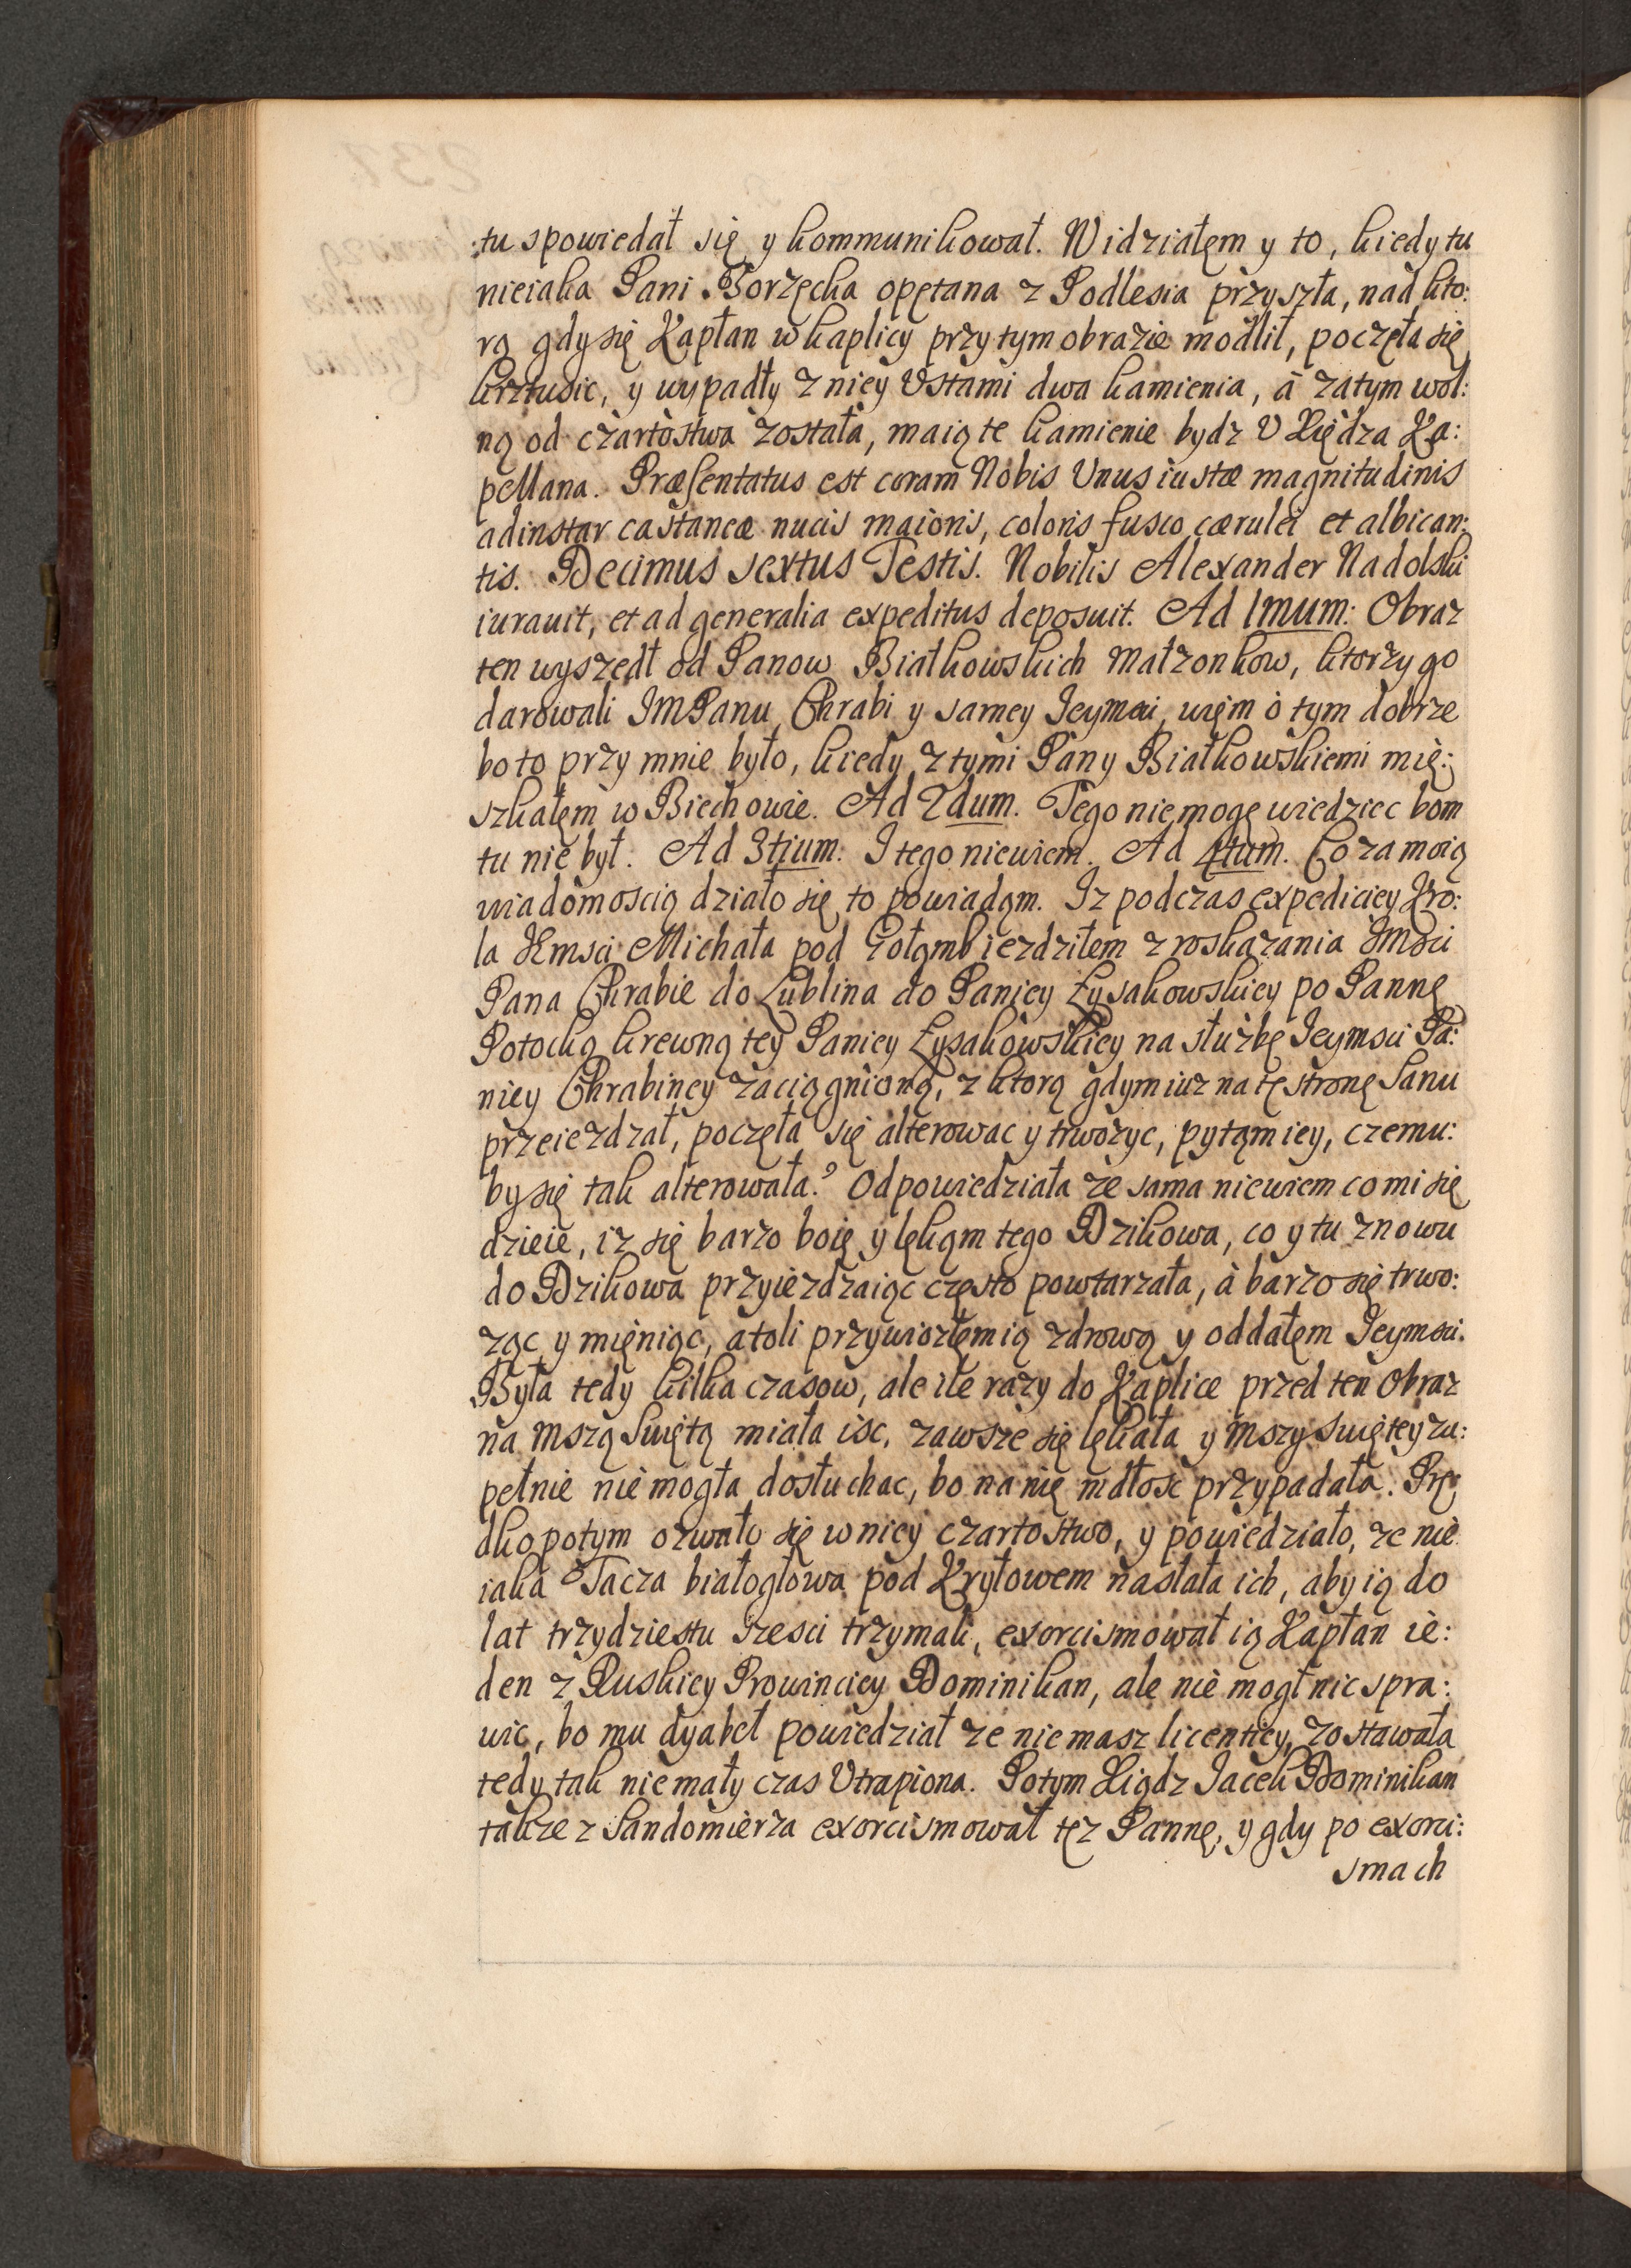 tu spowiedał się y kommunikował. Widziałęm y to, kiedy tu
nieiaka Pani Borzęcka opętana z Podlesia przyszła, nad kto:
rą gdy się Kapłan w kaplicy przy tym obrazie modlił, poczęła się
krztusic, y wypadły z niey Vstami dwa kamienia, à zatym wol:
ną od czartostwa została, maią te kamienie bydz V Xiędza Ka:
pellana. Præsentatus est coram Nobis Unus iustæ magnitudinis
adinstar castaneæ nucis maioris, coloris fusco cærulei et albican:
tis. Decimus sextus Testis. Nobilis Alexander Nadolski
iurauit, et ad generalia expeditus deposuit. Ad 1mum: Obraz
ten wyszedł od Panow Białkowskich Małzonkow, ktorzy go
darowali JMPanu Chrabi y samey Jeymsci, więm o tym dobrze
bo to przy mnie było, kiedy z tymi Pany Białkowskiemi mię:
szkałęm w Biechowie. Ad 2dum. Tego nie mogę wiedziec bom
tu nie był. Ad 3tium: I tego niewiem. Ad 4tum. Co za moią
wiadomoscią działo się to powiadąm. Iz podczas expediciey Kro:
la JKmsci Michała pod Gołąmb iezdziłem z roskazania JMsci
Pana Chrabie do Lublina do Paniey Łysakowskiey po Pannę
Potocką krewną tey Paniey Łysakowskiey na służbę Jeymsci Pa:
niey Chrabiney zaciągnioną, z ktorą gdym iuz na tę stronę Sanu
przeiezdzał, poczęła się alterowac y trwożyc, pytąm iey, czemu:
by się tak alterowała? Odpowiedziała że sama niewiem co mi się
dzieie, iz się barzo boię y lękąm tego Dzikowa, co y tu znowu
do Dzikowa przyiezdzaiąc często powtarzała, à barzo się trwo:
ząc y mięniąc, atoli przywiozłęm ią zdrową y oddałęm Jeymsci.
Była tedy kilka czasow, ale ile razy do Kaplice przed ten Obraz
na Mszą Swiętą miała isc, zawsze się lękała y Mszy Swiętey zu:
pełnie nie mogła dosłuchac, bo na nię mdłosc przypadała. Prę:
dko potym ozwało się w niey czartostwo, y powiedziało, ze nie
iaka Tacza białogłowa pod Kryłowem nasłała ich, aby ią do
lat trzydziestu szesci trzymali, exorcismował ią Kapłan ie:
den z Ruskiey Prowinciey Dominikan, ale nie mogł nic spra:
wic, bo mu dyabeł powiedział ze nie masz licentiey, zostawała
tedy tak nie mały czas Utrapiona. Potym Xiądz Jacek Dominikan
takze z Sandomierza exorcismował tęz Pannę, y gdy po exorci:
smach